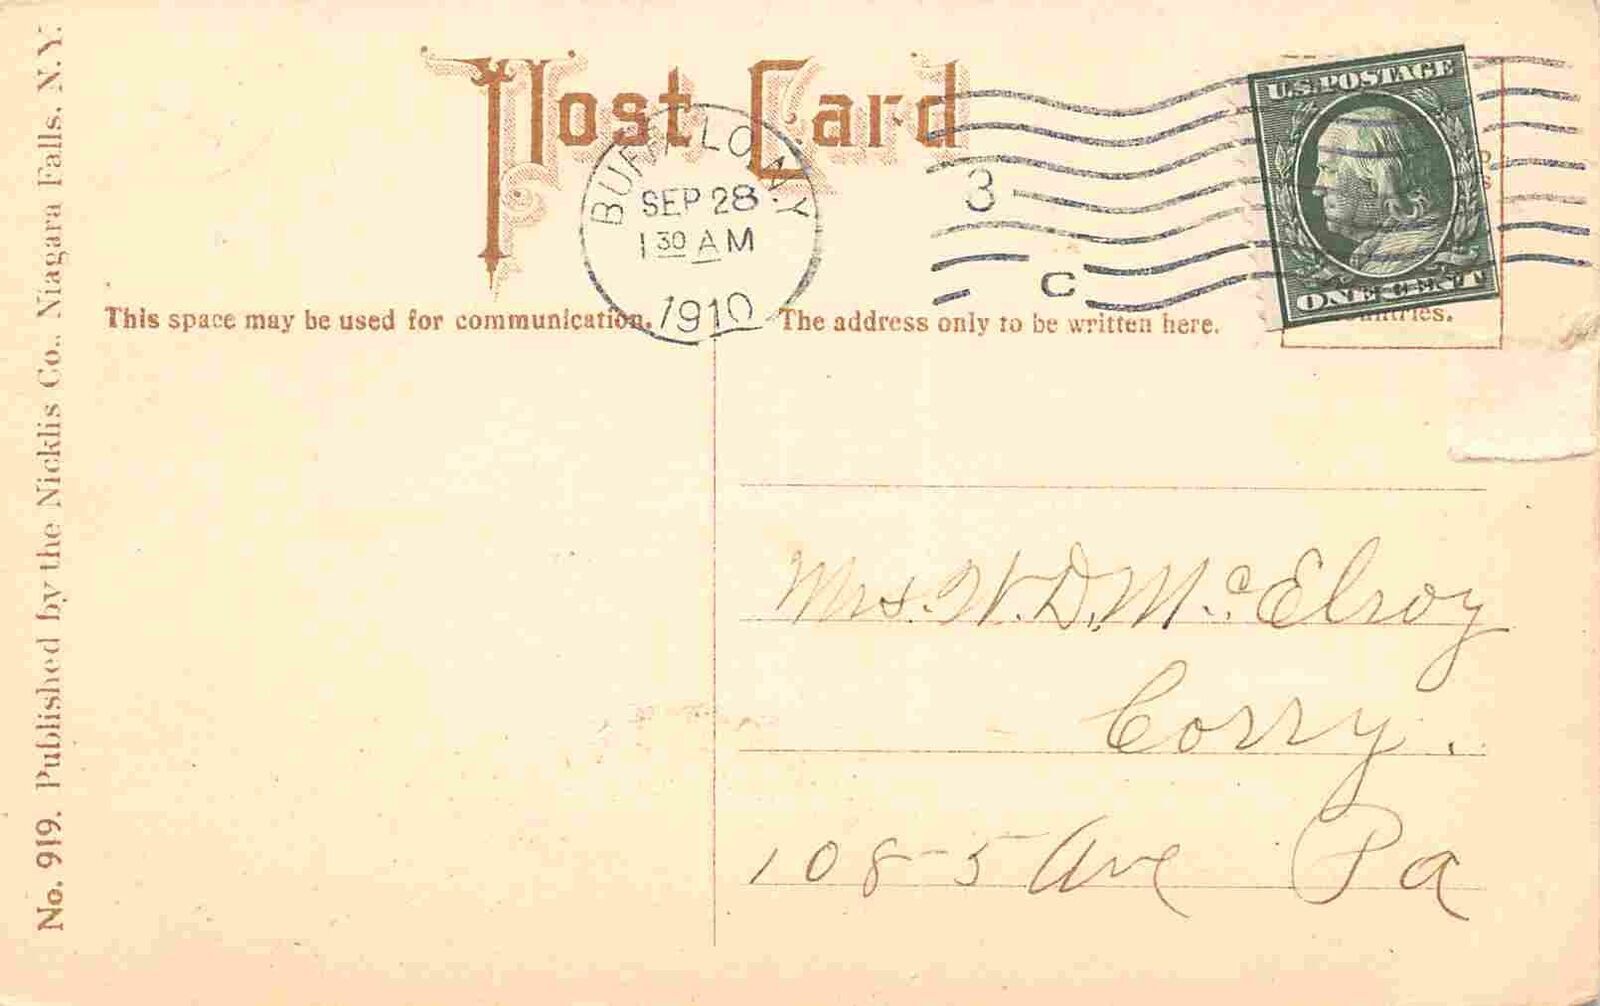 Post Card
BUFFALO, N.Y.
SEP 28
1 30 AM
1910
3
C
U.S. POSTAGE
ONE CENT
This space may be used for communication.
The address only to be written here.
Mrs. W. D. McElroy
Corry.
108-5 Ave Pa
No. 919. Published by the Nicklis Co., Niagara Falls, N.Y.